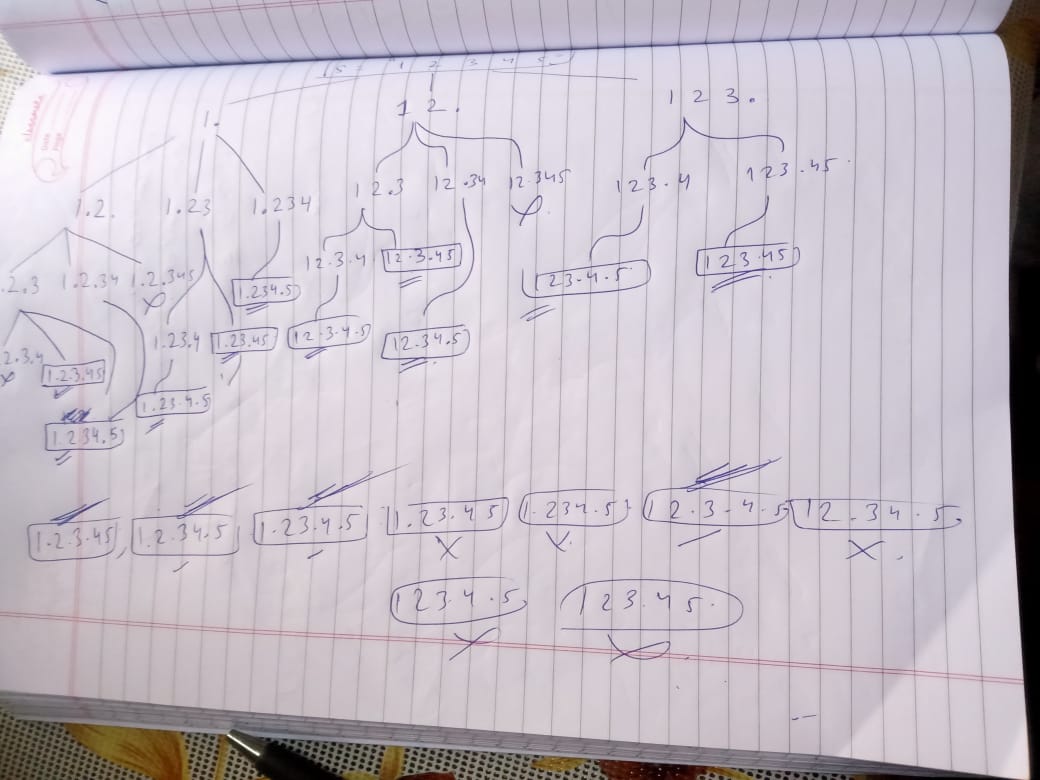 (S = "1 2 3 4 5")
1. 12. 123.
1.2. 1.23 1.234 12.3 12.34 12.345 123.4 123.45
.2.3 1.2.34 1.2.345 1.234.5 12.3.4 12.3.45 123.4.5 123.45
2.3.4 1.2.3.45 1.23.4 1.23.45 12.3.4.5 12.34.5
1.2.34.5 1.23.4.5
1.2.3.45, 1.2.34.5, 1.23.4.5 1.23.45 1.234.5, 12.3.4.5, 12.34.5,
123.4.5, 123.45.